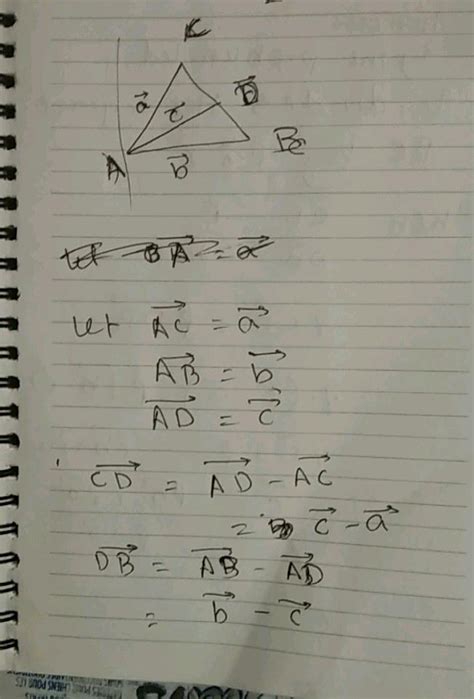 C
a⃗ c⃗ D
A b⃗ B
Let BA⃗ = a⃗
Let AC⃗ = a⃗
AB⃗ = b⃗
AD⃗ = c⃗
CD⃗ = AD⃗ - AC⃗
= c⃗ - a⃗
DB⃗ = AB⃗ - AD⃗
= b⃗ - c⃗